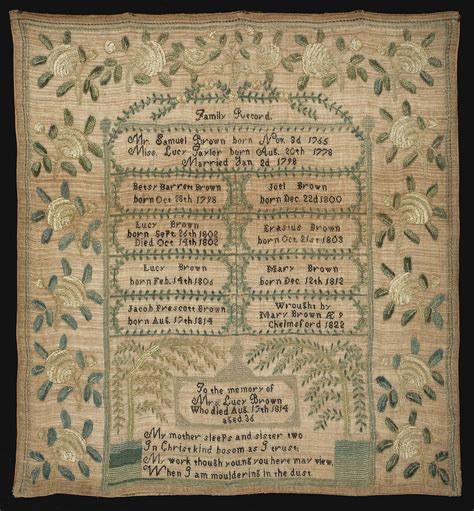 Family Record.
Mr. Samuel Brown born Nov. 3d 1765
Miss. Lucy Taylor born Aug. 20th 1778
Married Jan 2d 1798
Betsy Barron Brown
born Oct 28th 1798
Joel Brown
born Dec. 22d 1800
Lucy Brown
born Sept. 26th 1802
Died Oct. 14th 1802
Erastus Brown
born Oct. 21st 1803
Lucy Brown
born Feb. 14th 1806
Mary Brown
born Dec. 12th 1812
Jacob Prescott Brown
born Aug. 17th 1814
Wrought by
Mary Brown Æ 9
Chelmsford 1822
To the memory of
Mrs. Lucy Brown
Who died Aug. 17th 1814
aged 36
My mother sleeps and sister two
In Christ kind bosom as I trust;
My work though young you here may view,
When I am mouldering in the dust